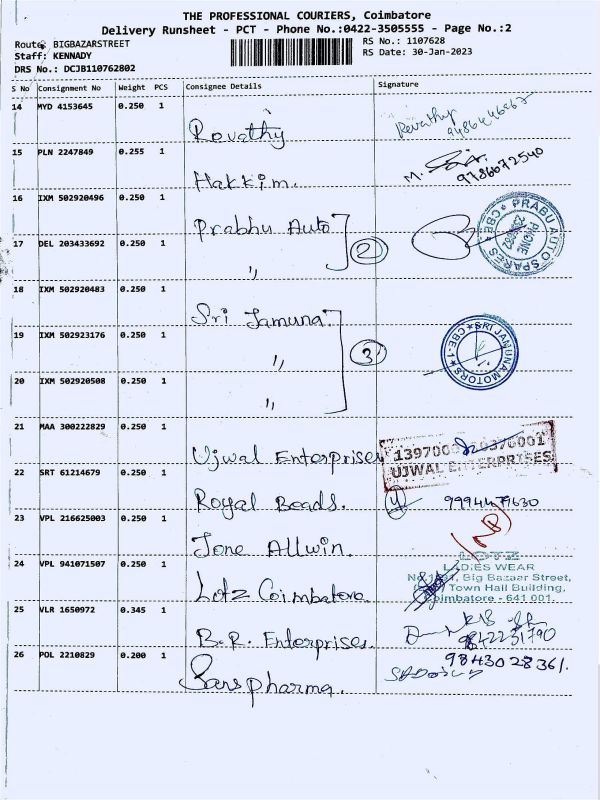 THE PROFESSIONAL COURIERS, Coimbatore
Delivery Runsheet - PCT - Phone No.:0422-3505555 - Page No.:2
Route: BIGBAZARSTREET RS No.: 1107628
Staff: KENNADY RS Date: 30-Jan-2023
DRS No.: DCJB110762802
S No Consignment No Weight PCS Consignee Details Signature
14 MYD 4153645 0.250 1 Revathy Revathy
9486446967
15 PLN 2247849 0.255 1 Hakkim. M.
9786672540
16 IXM 502920496 0.250 1 Prabhu Auto
PRABU AUTO SPARES
CBE
PHONE
17 DEL 203433692 0.250 1 ,, 2
18 IXM 502920483 0.250 1 Sri Jamuna.
19 IXM 502923176 0.250 1 ,, 3
SRI JAMUNA MOTORS
CBE-1
20 IXM 502920508 0.250 1 ,,
21 MAA 300222829 0.250 1 Ujwal Enterprises
UJWAL ENTERPRISES
22 SRT 61214679 0.250 1 Royal Beads. 9994479630
23 VPL 216625003 0.250 1 Jone Allwin.
24 VPL 941071507 0.250 1 Lotz Coimbatore
LOTZ
LADIES WEAR
Big Bazaar Street,
Town Hall Building,
Coimbatore - 641 001.
25 VLR 1650972 0.345 1 B.R. Enterprises.
9842231790
26 POL 2210829 0.200 1 Sans pharma. 9843028361.